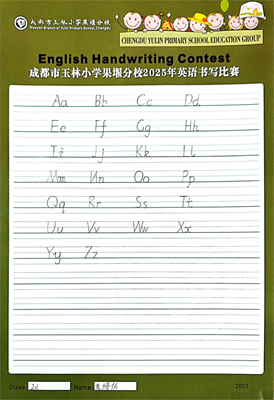 成都市玉林小学果堰分校
CHENGDU YULIN PRIMARY SCHOOL EDUCATION GROUP
English Handwriting Contest
成都市玉林小学果堰分校2025年英语书写比赛
Aa Bb Cc Dd
Ee Ff Gg Hh
Ii Jj Kk Ll
Mm Nn Oo Pp
Qq Rr Ss Tt
Uu Vv Ww Xx
Yy Zz
Class: Name:
2025